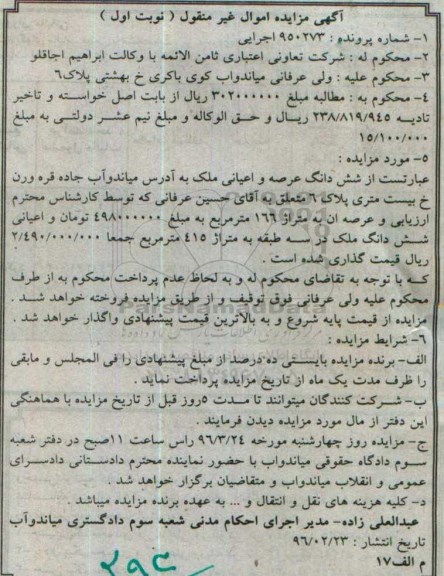 آگهی مزایده اموال غیر منقول ( نوبت اول )
۱- شماره پرونده : ۹۵۰۲۷۳ اجرایی
۲- محکوم له : شرکت تعاونی اعتباری ثامن الائمه با وکالت ابراهیم اجاقلو
۳- محکوم علیه : ولی عرفانی میاندواب کوی باکری خ بهشتی پلاک۶
۴- محکوم به : مطالبه مبلغ ۳۰۲۰۰۰۰۰۰ ریال از بابت اصل خواسته و تاخیر
تادیـه ۲۳۸/۸۱۹/۹۴۵ ریـال و حـق الوکاله و مبلغ نیم عشـر دولتـی به مبلغ
۱۵/۱۰۰/۰۰۰
۵- مورد مزایده :
عبارتست از شش دانگ عرصه و اعیانی ملک به آدرس میاندوآب جاده قره ورن
خ بیست متری پلاک ۶ متعلق به آقای حسین عرفانی که توسط کارشناس محترم
ارزیابی و عرصه ان به متراژ ۱۶۶ مترمربع به مبلغ ۴۹۸۰۰۰۰۰۰ تومان و اعیانی
شـش دانگ ملک در سـه طبقه به متراژ ۴۱۵ مترمربع جمعا ۲/۴۹۰/۰۰۰/۰۰۰
ریال قیمت گذاری شده است .
کـه با توجه به تقاضای محکوم له و به لحاظ عدم پرداخت محکوم به از طرف
محکوم علیه ولی عرفانی فوق توقیف و از طریق مزایده فروخته خواهد شـد .
مزایده از قیمت پایه شروع و به بالاترین قیمت پیشنهادی واگذار خواهد شد .
۶- شرایط مزایده :
الف- برنده مزایده بایستی ده درصد از مبلغ پیشنهادی را فی المجلس و مابقی
را ظرف مدت یک ماه از تاریخ مزایده پرداخت نماید .
ب- شـرکت کنندگان میتوانند تا مـدت ۵روز قبل از تاریخ مزایده با هماهنگی
این دفتر از مال مورد مزایده دیدن فرمایند .
ج- مزایده روز چهارشنبه مورخه ۹۶/۳/۲۴ راس ساعت ۱۱صبح در دفتر شعبه
سـوم دادگاه حقوقی میاندواب با حضور نماینده محترم دادسـتانی دادسـرای
عمومی و انقلاب میاندواب و متقاضیان برگزار خواهد شد .
د- کلیه هزینه های نقل و انتقال و ... به عهده برنده مزایده میباشد .
عبدالعلی زاده- مدیر اجرای احکام مدنی شعبه سوم دادگستری میاندوآب
تاریخ انتشار : ۹۶/۰۲/۲۳
م الف۱۷